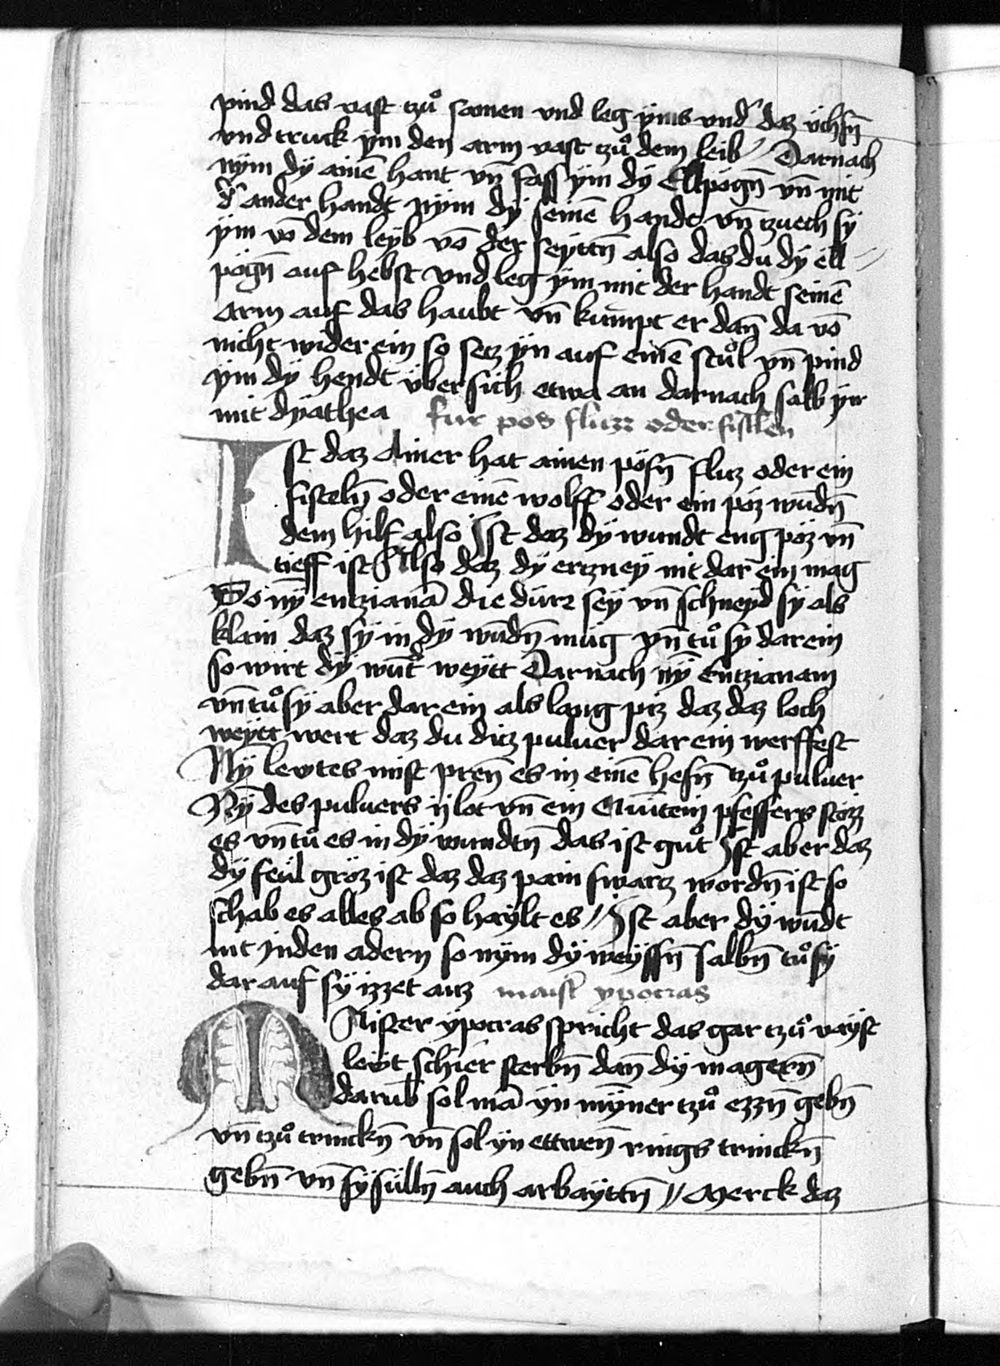 pind das vast tzuͦ samen vnd leg yms vnd' daz v̈chsn̄
vnd truck ym den arm vast tzuͦ dem leib // Darnach
nym dÿ ainē hant vn̄ fass ym dÿ Ellpogn̄ vn̄ mit
d' ander handt nym dÿ seinē handt vn̄ tzuech sy
ym vō dem leyb vō der seyttn̄ also das du dÿ ell //
pogn̄ auf hebst vnd leg ym mit der handt seinē
arm auf das haubt vn̄ kumpt er dan̄ da vō
nicht wider ein so setz yn auf einē stuͦl vn̄ pind
ym dÿ hendt über sich etwa an darnach salb yn
mit dyathea fur pos flu͂zz oder fistlen
Ist daz Ainer hat ainen pösn̄ fluz oder ein
fisteln̄ oder einē wolff oder ein pöz wūdn̄
dem hilf also Ist daz dÿ wundt eng pöz vn̄
tieff ist Also daz dÿ ertzney nit dar ein mag
So nȳ entzianā die dürr sey vn̄ schneyd sy als
klain daz sy in dÿ wūdn̄ müg vn̄ tuͦ sy darein
so wirt dÿ wūt weytt Darnach nȳ entzianam
vn̄ tuͦ sy aber dar ein als lang piz daz daz loch
weytt wert daz du ditz puluer dar ein werffest
Nȳ lewtes mist pren̄ es in einē hefn̄ tzuͦ puluer
Nȳ des puluers ij lot vn̄ ein Quītein pfeffers stözz
es vn̄ tuͦ es in dÿ wundtn̄ das ist guͦt Ist aber daz
dÿ feül gröz ist daz daz pain swartz wordn̄ ist so
schab es alles ab so haylt es // Ist aber dÿ wūdt
nit jnden adern so nym dÿ weyssn̄ salbn̄ tuͦ sy
dar auf sy izzet auz maist' ypocras
Maister ypocras spricht das gar tzuͦ vayst
lewt schier sterbn̄ dan̄ dÿ magern̄
darūb sol mā yn mÿner tzuͦ ezzn̄ gebn̄
vn̄ tzuͦ trinckn̄ vn̄ sol yn ettwen̄ rings trinckn̄
gebn̄ vn̄ sy sülln̄ auch arbayttn̄ // Merck daz